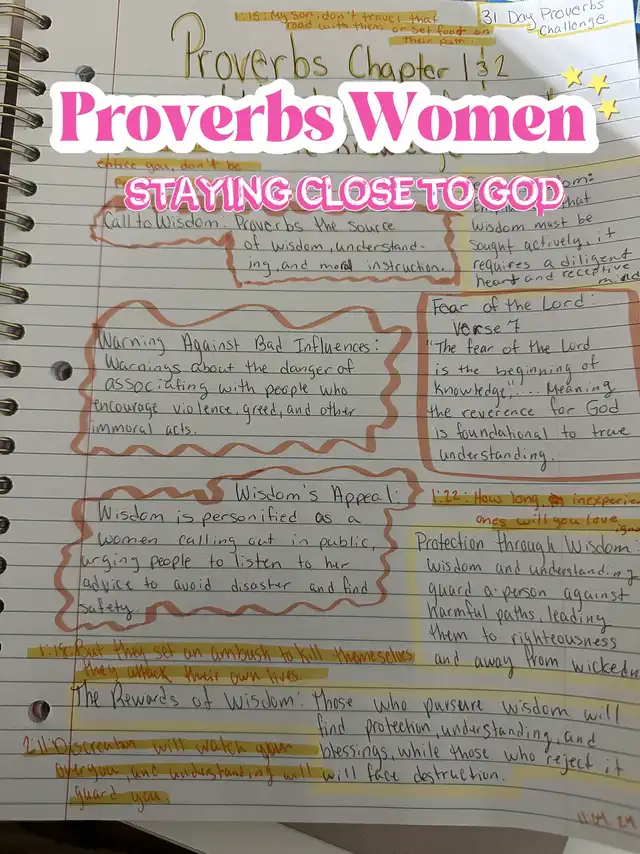 1:15: My son, don't travel that
road with them or set foot on
their path.
31 Day Proverbs
Challenge
Proverbs Chapter 1 & 2
Proverbs Women
STAYING CLOSE TO GOD
entice you, don't be
Call to Wisdom: Proverbs the source
of wisdom, understand-
ing, and moral instruction.
that
wisdom must be
sought actively, it
requires a diligent
heart and receptive
mind
Warning Against Bad Influences:
Warnings about the danger of
associating with people who
encourage violence, greed, and other
immoral acts.
Fear of the Lord:
verse 7
"The fear of the Lord
is the beginning of
knowledge",... Meaning
the reverence for God
is foundational to true
understanding.
Wisdom's Appeal:
Wisdom is personified as a
women calling out in public,
urging people to listen to her
advice to avoid disaster and find
safety.
1:22: How long, inexperie
ones will you love
Protection through Wisdom:
wisdom and understanding
guard a person against
harmful paths, leading
them to righteousness
and away from wickedn
but they set an ambush to kill themselves
they attack their own lives.
The Rewards of Wisdom: Those who pursure wisdom will
find protection, understanding, and
blessings, while those who reject it
will face destruction.
2:11: Discreation will watch
over you, and understanding will
guard you.